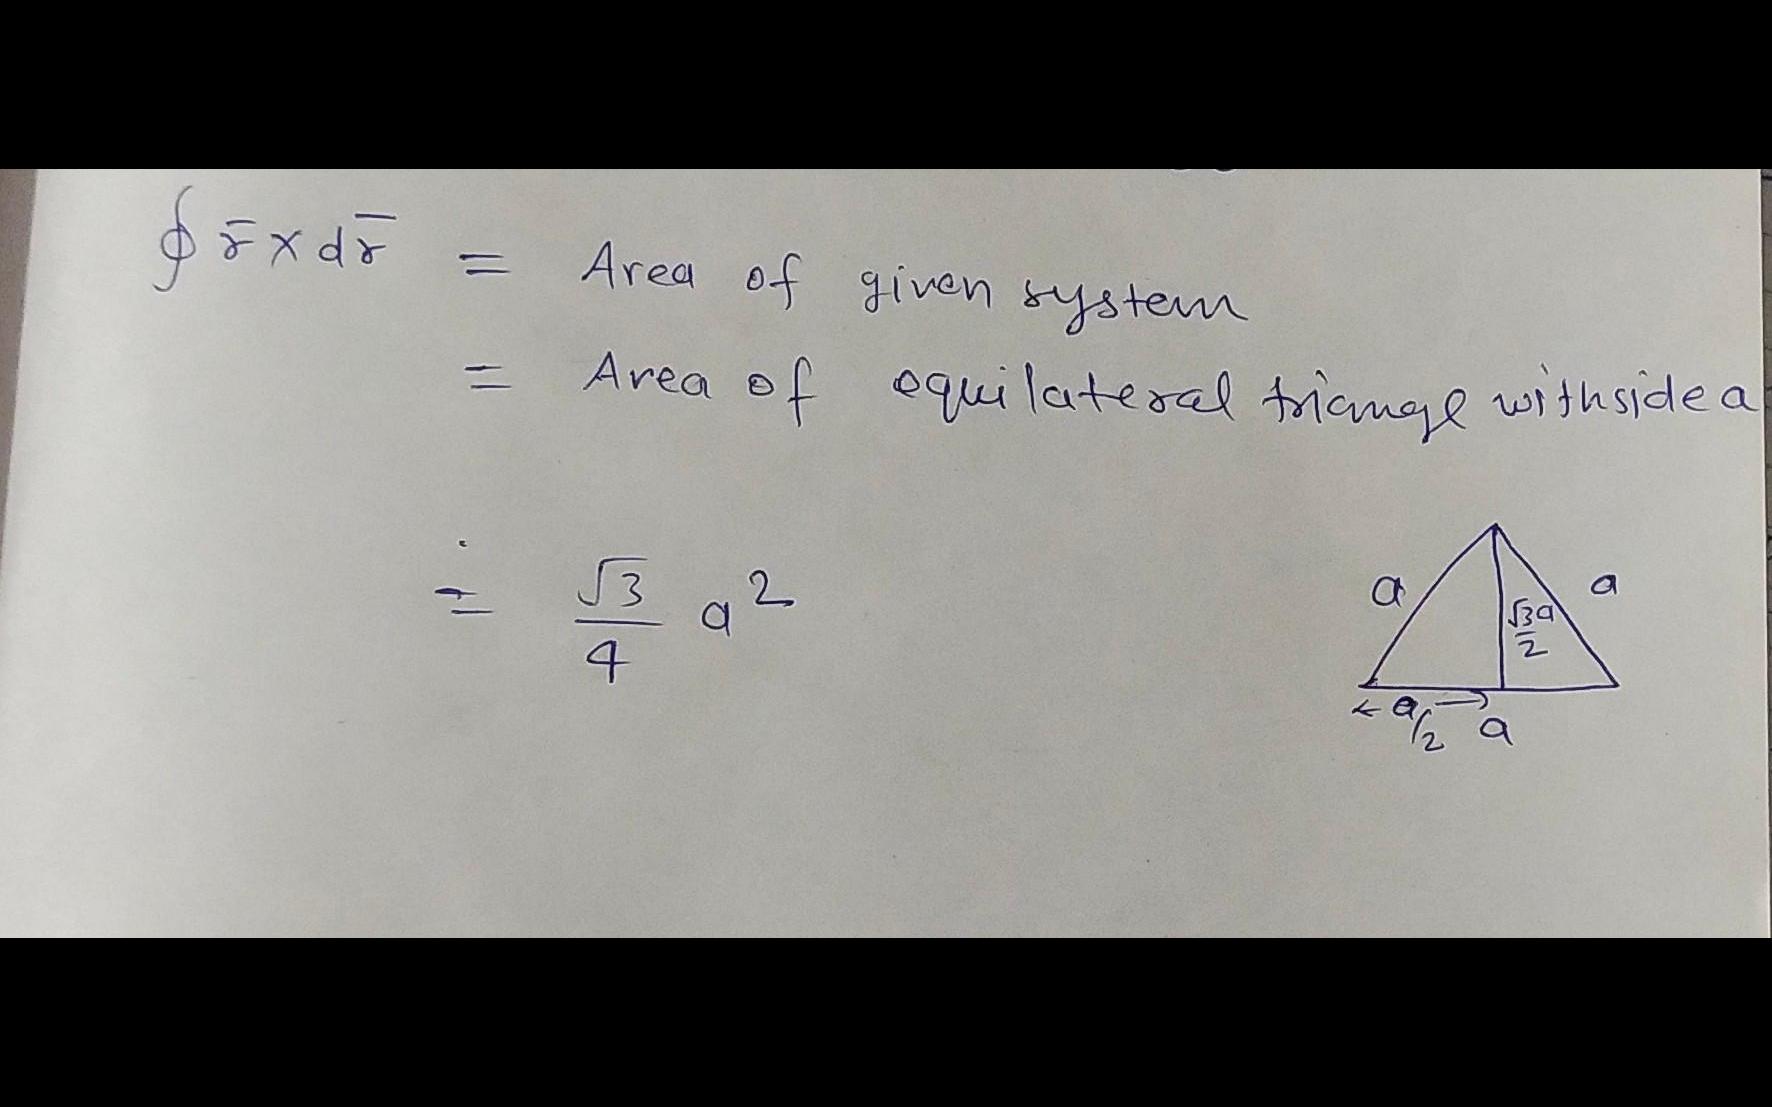 ∮ r̅ × dr̅ = Area of given system
= Area of equilateral triangle with side a
= √3/4 a²
a
a
√3a/2
← a/2 →
a